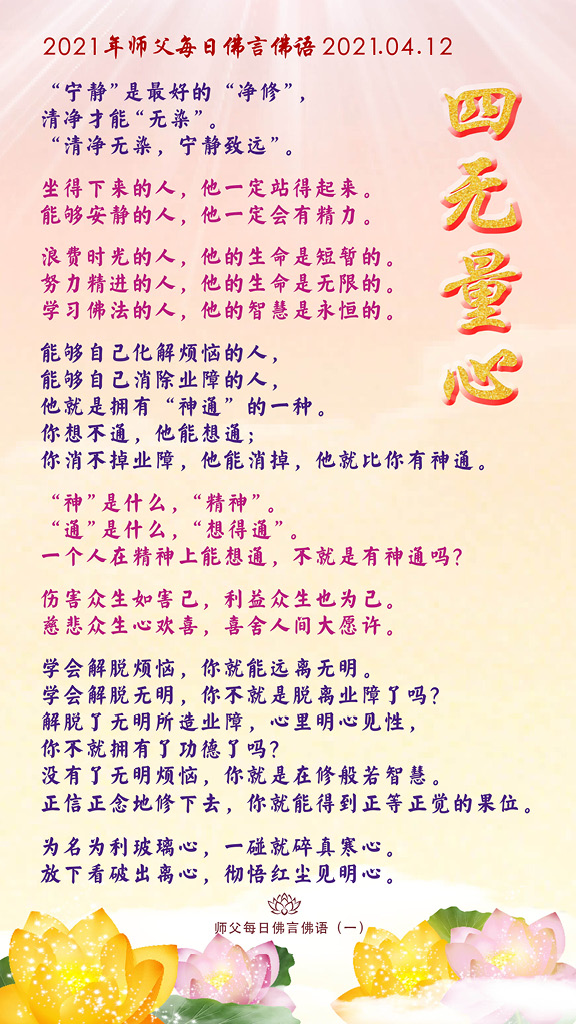 2021年师父每日佛言佛语 2021.04.12
四无量心
“宁静”是最好的“净修”，
清净才能“无染”。
“清净无染，宁静致远”。
坐得下来的人，他一定站得起来。
能够安静的人，他一定会有精力。
浪费时光的人，他的生命是短暂的。
努力精进的人，他的生命是无限的。
学习佛法的人，他的智慧是永恒的。
能够自己化解烦恼的人，
能够自己消除业障的人，
他就是拥有“神通”的一种。
你想不通，他能想通；
你消不掉业障，他能消掉，他就比你有神通。
“神”是什么，“精神”。
“通”是什么，“想得通”。
一个人在精神上能想通，不就是有神通吗？
伤害众生如害己，利益众生也为己。
慈悲众生心欢喜，喜舍人间大愿许。
学会解脱烦恼，你就能远离无明。
学会解脱无明，你不就是脱离业障了吗？
解脱了无明所造业障，心里明心见性，
你不就拥有了功德了吗？
没有了无明烦恼，你就是在修般若智慧。
正信正念地修下去，你就能得到正等正觉的果位。
为名为利玻璃心，一碰就碎真寒心。
放下看破出离心，彻悟红尘见明心。
师父每日佛言佛语（一）